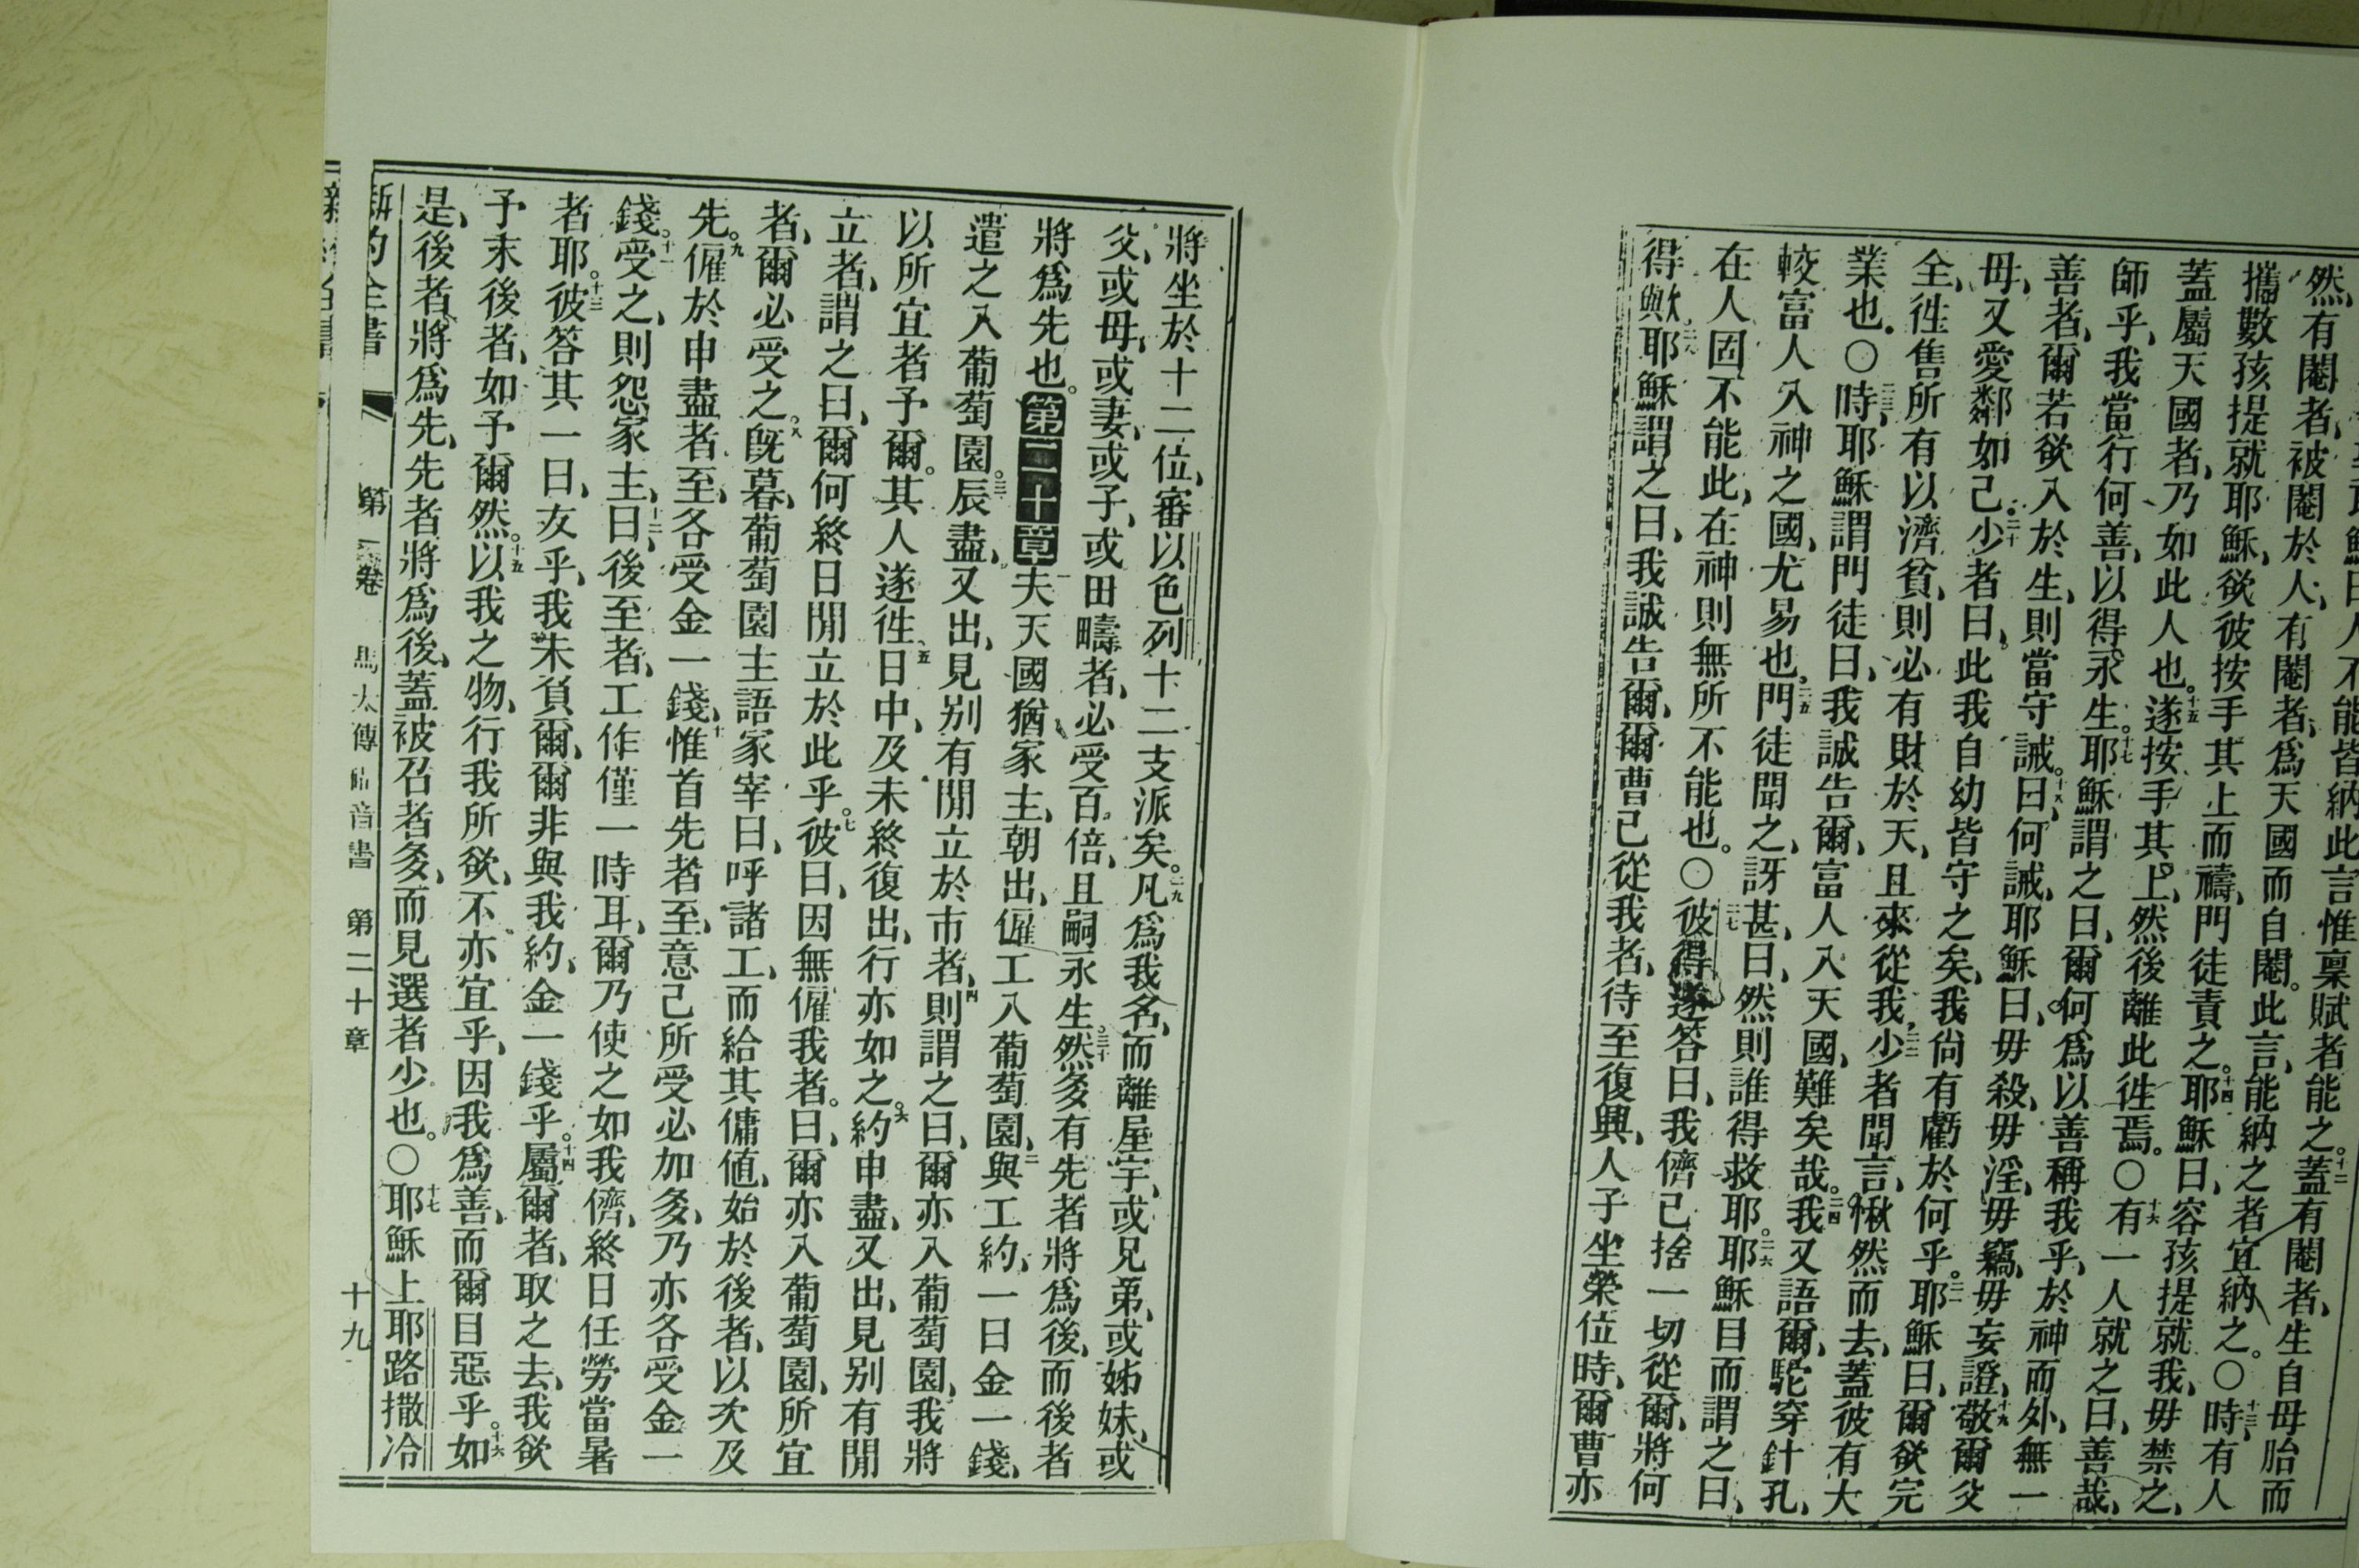 能皆納此言惟稟賦者能之十二蓋有閹者生自母胎而
然有閹者被閹於人有閹者爲天國而自閹此言能納之者宜納之〇十三時有人
攜數孩提就耶穌欲彼按手其上而禱門徒責之十四耶穌曰容孩提就我毋禁之
蓋屬天國者乃如此人也十五遂按手其上然後離此徃焉〇十六有一人就之曰善哉
師乎我當行何善以得永生十七耶穌謂之曰爾何爲以善稱我乎於神而外無一
善者爾若欲入於生則當守誡十八曰何誡耶穌曰毋殺毋淫毋竊毋妄證十九敬爾父
母又愛鄰如己二十少者曰此我自幼皆守之矣我尙有虧於何乎二一耶穌曰爾欲完
全徃售所有以濟貧則必有財於天且來從我二二少者聞言愀然而去蓋彼有大
業也〇二三時耶穌謂門徒曰我誠告爾富人入天國難矣哉二四我又語爾駝穿針孔
較富人入神之國尤易也二五門徒聞之訝甚曰然則誰得救耶二六耶穌目而謂之曰
在人固不能此在神則無所不能也〇二七彼得遂答曰我儕已捨一切從爾將何
得歟二八耶穌謂之曰我誠告爾爾曹已從我者待至復興人子坐榮位時爾曹亦
將坐於十二位審以色列十二支派矣二九凡爲我名而離屋宇或兄弟或姊妹或
父或母或妻或子或田疇者必受百倍且嗣永生三十然多有先者將爲後而後者
將爲先也。第二十章一夫天國猶家主朝出僱工入葡萄園二與工約一日金一錢
遣之入葡萄園三辰盡又出見别有閒立於市者四則謂之曰爾亦入葡萄園我將
以所宜者予爾其人遂徃五日中及未終復出行亦如之六約申盡又出見别有閒
立者謂之曰爾何終日閒立於此乎七彼曰因無僱我者曰爾亦入葡萄園所宜
者爾必受之八旣暮葡萄園主語家宰曰呼諸工而給其傭値始於後者以次及
先九僱於申盡者至各受金一錢十惟首先者至意己所受必加多乃亦各受金一
錢十一受之則怨家主十二曰後至者工作僅一時耳爾乃使之如我儕終日任勞當暑
者耶十三彼答其一曰友乎我未負爾爾非與我約金一錢乎十四屬爾者取之去我欲
予末後者如予爾然十五以我之物行我所欲不亦宜乎因我爲善而爾目惡乎十六如
是後者將爲先先者將爲後蓋被召者多而見選者少也〇十七耶穌上耶路撒冷
新約全書 第一卷 馬太傳福音書 第二十章 十九